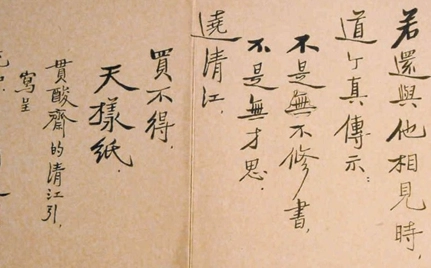 若還與他相見時,
道个真傳示:
不是無不修書,
不是無才思.
遶清江,
買不得,
天樣紙.
貫酸齋的清江引,
寫呈